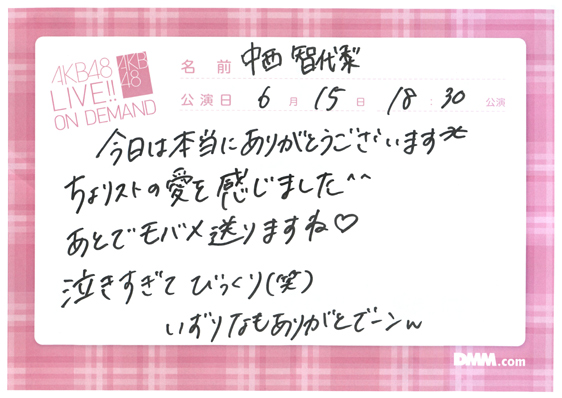 AKB48
LIVE!!
ON DEMAND
AKB
48
名前 中西 智代梨
公演日 6月15日 18:30公演
今日は本当にありがとうございます
ちょリストの愛を感じました^^
あとでモバメ送りますね♡
泣きすぎてびっくり(笑)
いずりなもありがとでーンw
DMM.com